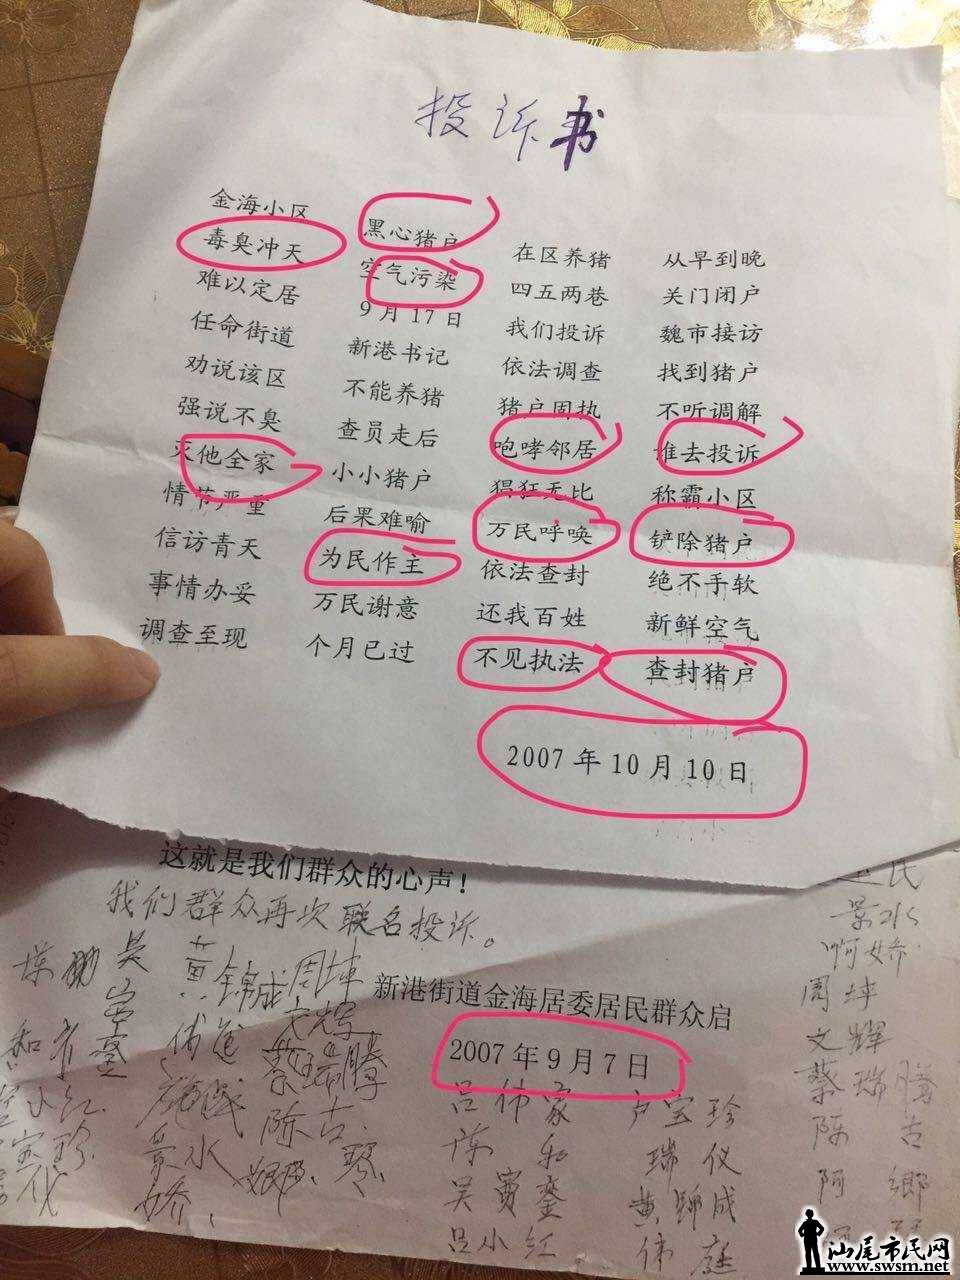 投诉书
金海小区 黑心猪户 在区养猪 从早到晚
毒臭冲天 空气污染 四五两巷 关门闭户
难以定居 9月17日 我们投诉 魏市接访
任命街道 新港书记 依法调查 找到猪户
劝说该区 不能养猪 猪户固执 不听调解
强说不臭 查员走后 咆哮邻居 谁去投诉
灭他全家 小小猪户 猖狂无比 称霸小区
情节严重 后果难喻 万民呼唤 铲除猪户
信访青天 为民作主 依法查封 绝不手软
事情办妥 万民谢意 还我百姓 新鲜空气
调查至现 个月已过 不见执法 查封猪户
2007年10月10日
这就是我们群众的心声！
我们群众再次联名投诉。
新港街道金海居委居民群众启
2007年9月7日
吕伟家 卢宝珍
陈和 瑞仪
吴宝銮 黄锦成
吕小红 伟庭
景水
啊娇
周坤
文辉
蔡瑞腾
陈古
阿乡
汕尾市民网
www.swsm.net